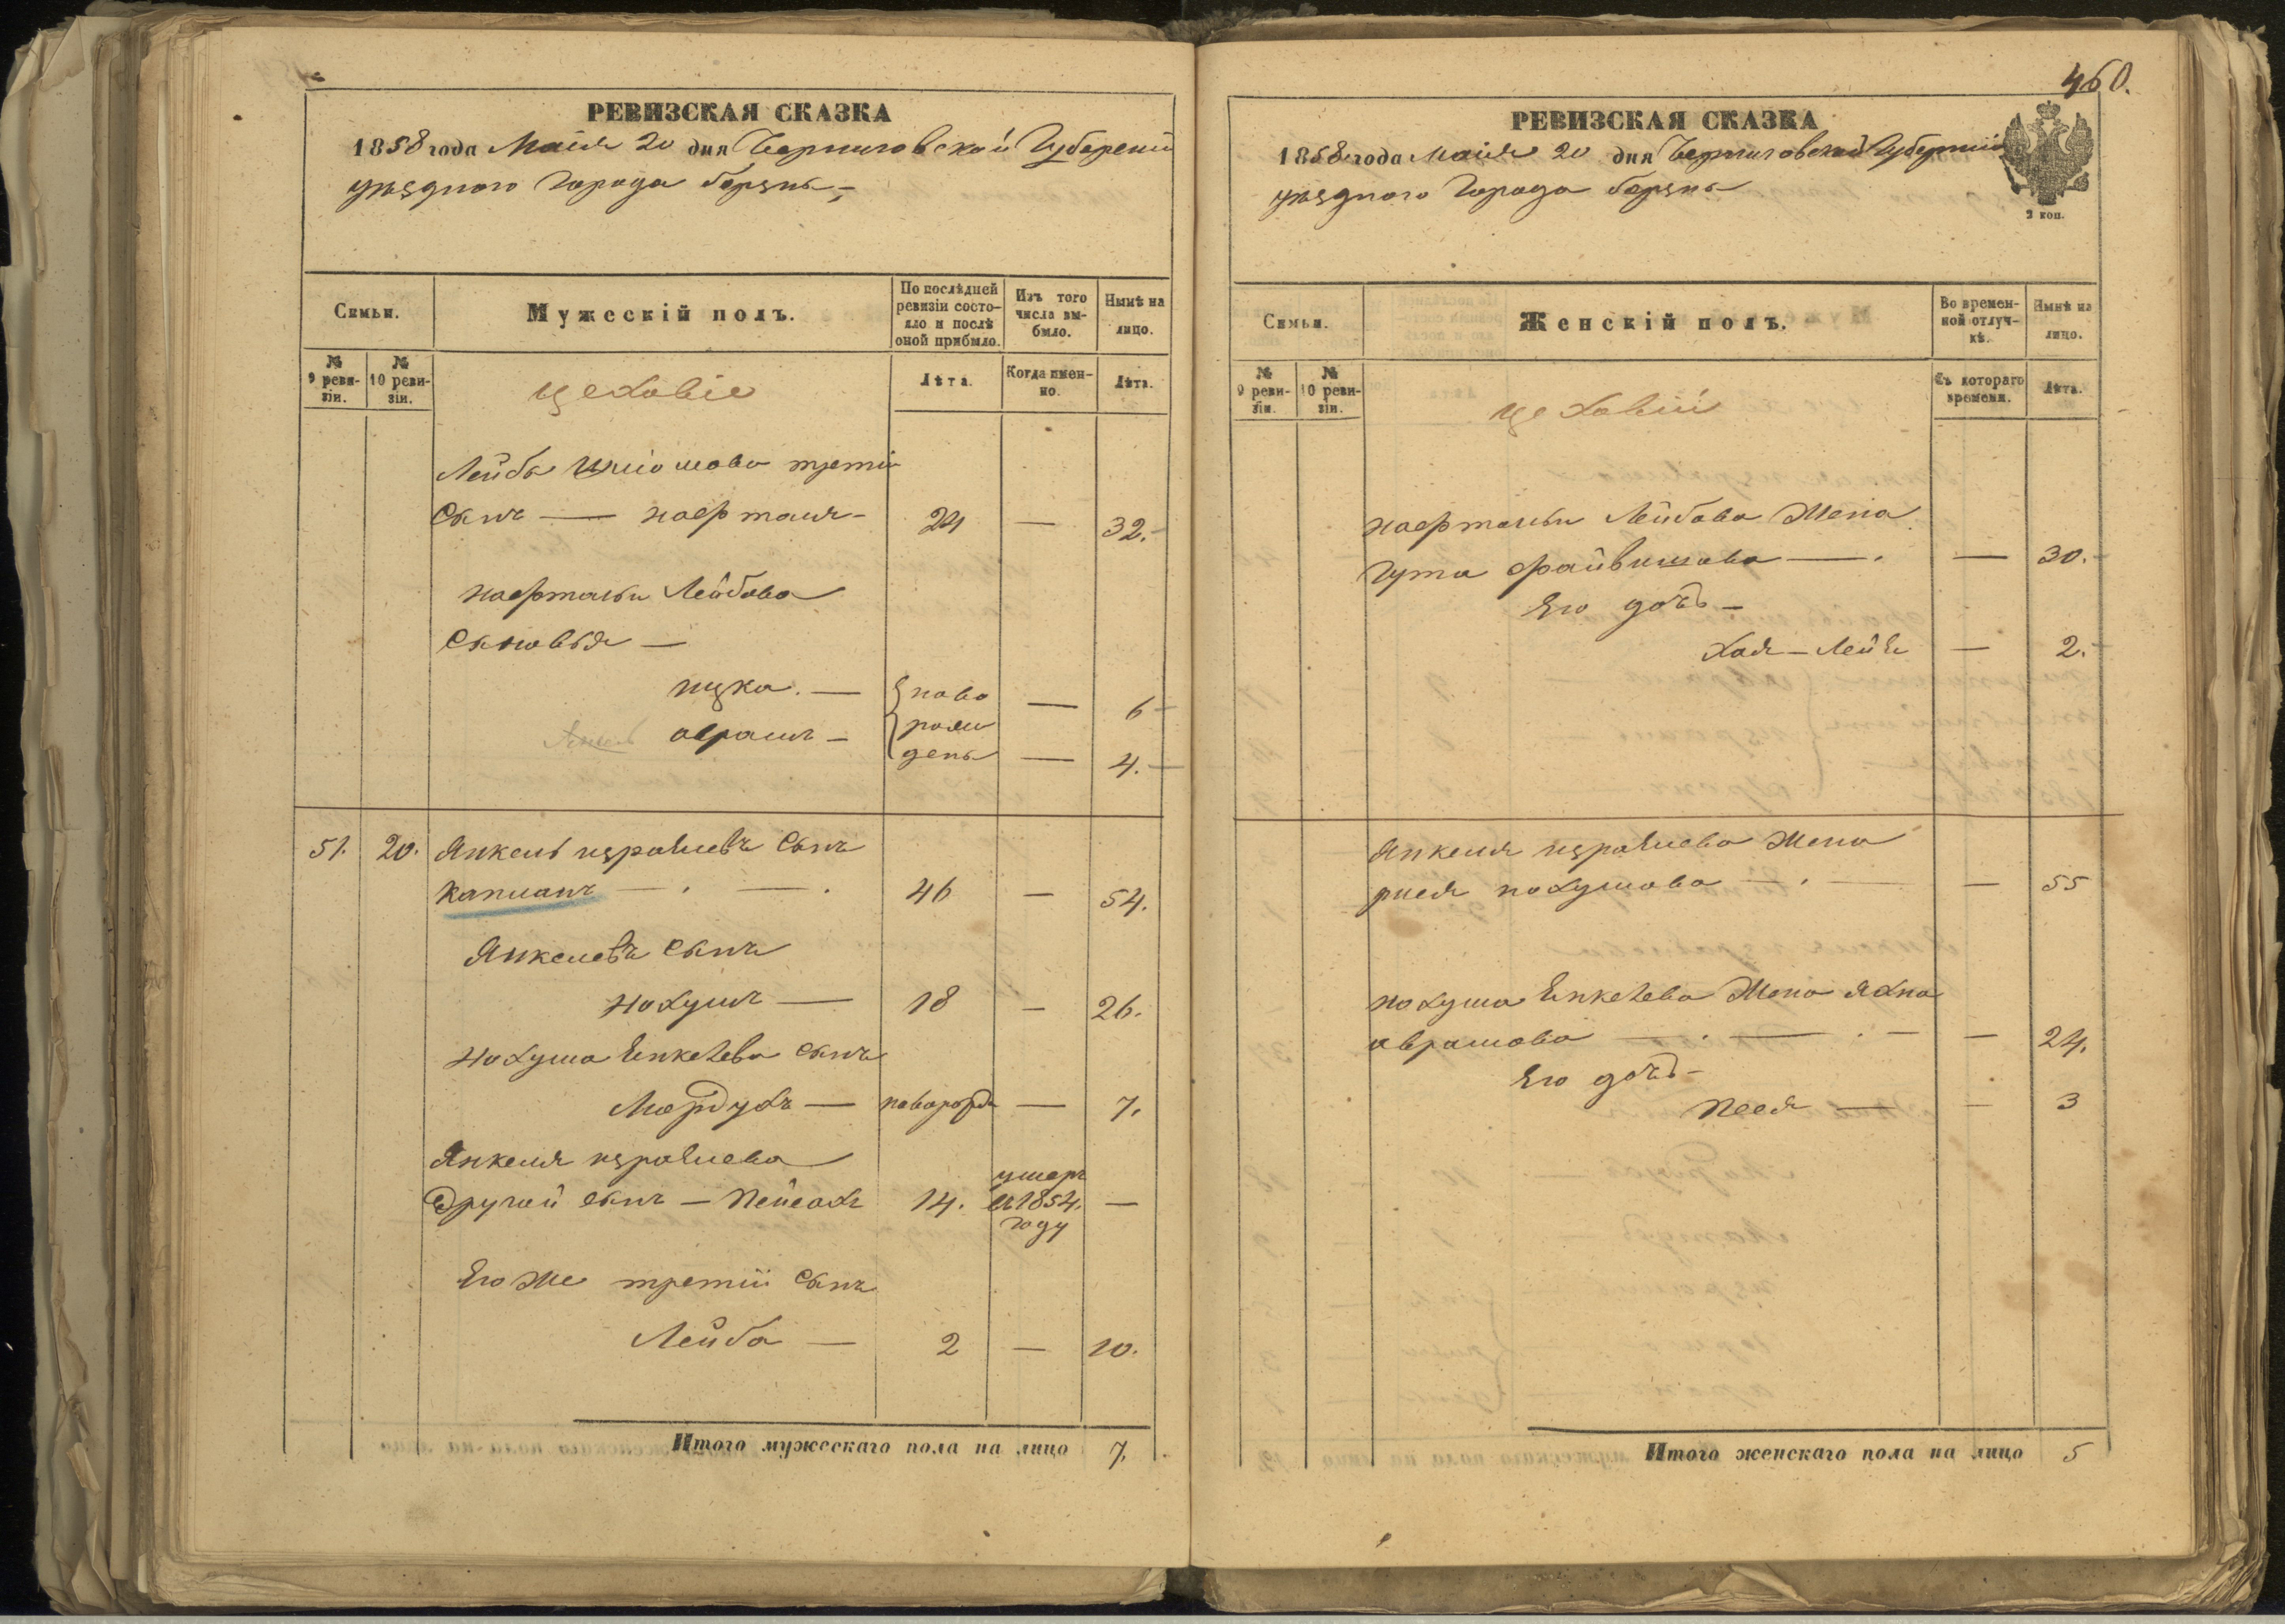 РЕВИЗСКАЯ СКАЗКА
1858 года Маія 20 дня Черниговской Губерніи
уѣзднаго Города борзны
Семьи.
Мужескій полъ.
По послѣдней ревизіи состояло и послѣ оной прибыло.
Изъ того числа выбыло.
Нынѣ на лицо.
№ 9 ревизіи.
№ 10 ревизіи.
цеховіе
Лѣта.
Когда именно.
Лѣта.
Лейбы третій
Сынъ — нафталя — 24 — 32.
нафтальи Лейбова
Сыновья —
ицка. — ново — 6
аврамъ — рожденъ — 4.
51. 20. Янкель израилевъ Сынъ
Капланъ — . — . 46 — 54.
Янкелевъ Сынъ
Нохумъ — 18 — 26.
Нохума Енкелева Сынъ
Мордухъ — новорожд — 7.
Янкеля израилева
Другой сынъ — Пейсахъ 14. умеръ въ 1854. году —
Его Же третій Сынъ
Лейба — 2 — 10.
Итого мужескаго пола на лицо 7.
460.
РЕВИЗСКАЯ СКАЗКА
1858 года Маія 20 дня Черниговской Губерніи
уѣзднаго Города борзны
2 коп.
Семьи.
Женскій полъ.
Во временной отлучкѣ.
Нынѣ на лицо.
№ 9 ревизіи.
№ 10 ревизіи.
цеховій
Съ котораго времени.
Лѣта.
нафтальи Лейбова Жена
Гута файвишова — . — 30.
Его дочь —
Хая — Лея — 2.
Янкеля израилева Жена
рися нохумова — . — — 55
нохума Енкелева Жена Яхна
аврамова — . — . — — 24.
Его дочь —
Песя — — 3
Итого женскаго пола на лицо 5